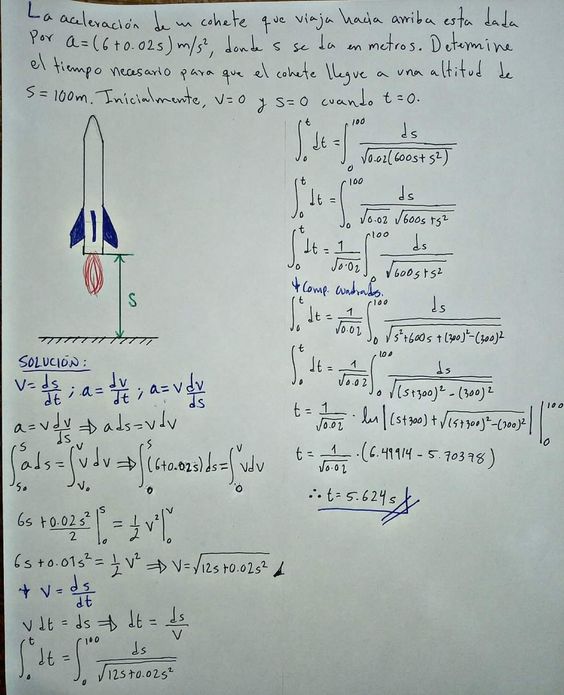 La aceleración de un cohete que viaja hacia arriba esta dada
por a=(6+0.02s) m/s², donde s se da en metros. Determine
el tiempo necesario para que el cohete llegue a una altitud de
s=100m. Inicialmente, v=0 y s=0 cuando t=0.
S
SOLUCIÓN:
V=ds/dt ; a=dv/dt ; a=v dv/ds
a=v dv/ds ⇒ a ds=v dv
∫_{s₀}^{s} a ds=∫_{v₀}^{v} v dv ⇒ ∫_0^s (6+0.02s) ds=∫_0^v v dv
6s+0.02s²/2 |_0^s = 1/2 v² |_0^v
6s+0.01s²=1/2 v² ⇒ V=√(12s+0.02s²)
+ V=ds/dt
v dt = ds ⇒ dt = ds/v
∫_0^t dt=∫_0^100 ds/√(12s+0.02s²)
∫_0^t dt=∫_0^100 ds/√(0.02(600s+s²))
∫_0^t dt=∫_0^100 ds/(√0.02 √(600s+s²))
∫_0^t dt=1/√0.02 ∫_0^100 ds/√(600s+s²)
+ Comp. cuadrados.
∫_0^t dt=1/√0.02 ∫_0^100 ds/√(s²+600s+(300)²-(300)²)
∫_0^t dt=1/√0.02 ∫_0^100 ds/√((s+300)²-(300)²)
t=1/√0.02 · ln|(s+300)+√((s+300)²-(300)²)| |_0^100
t=1/√0.02 ·(6.49914-5.70378)
∴ t=5.624s